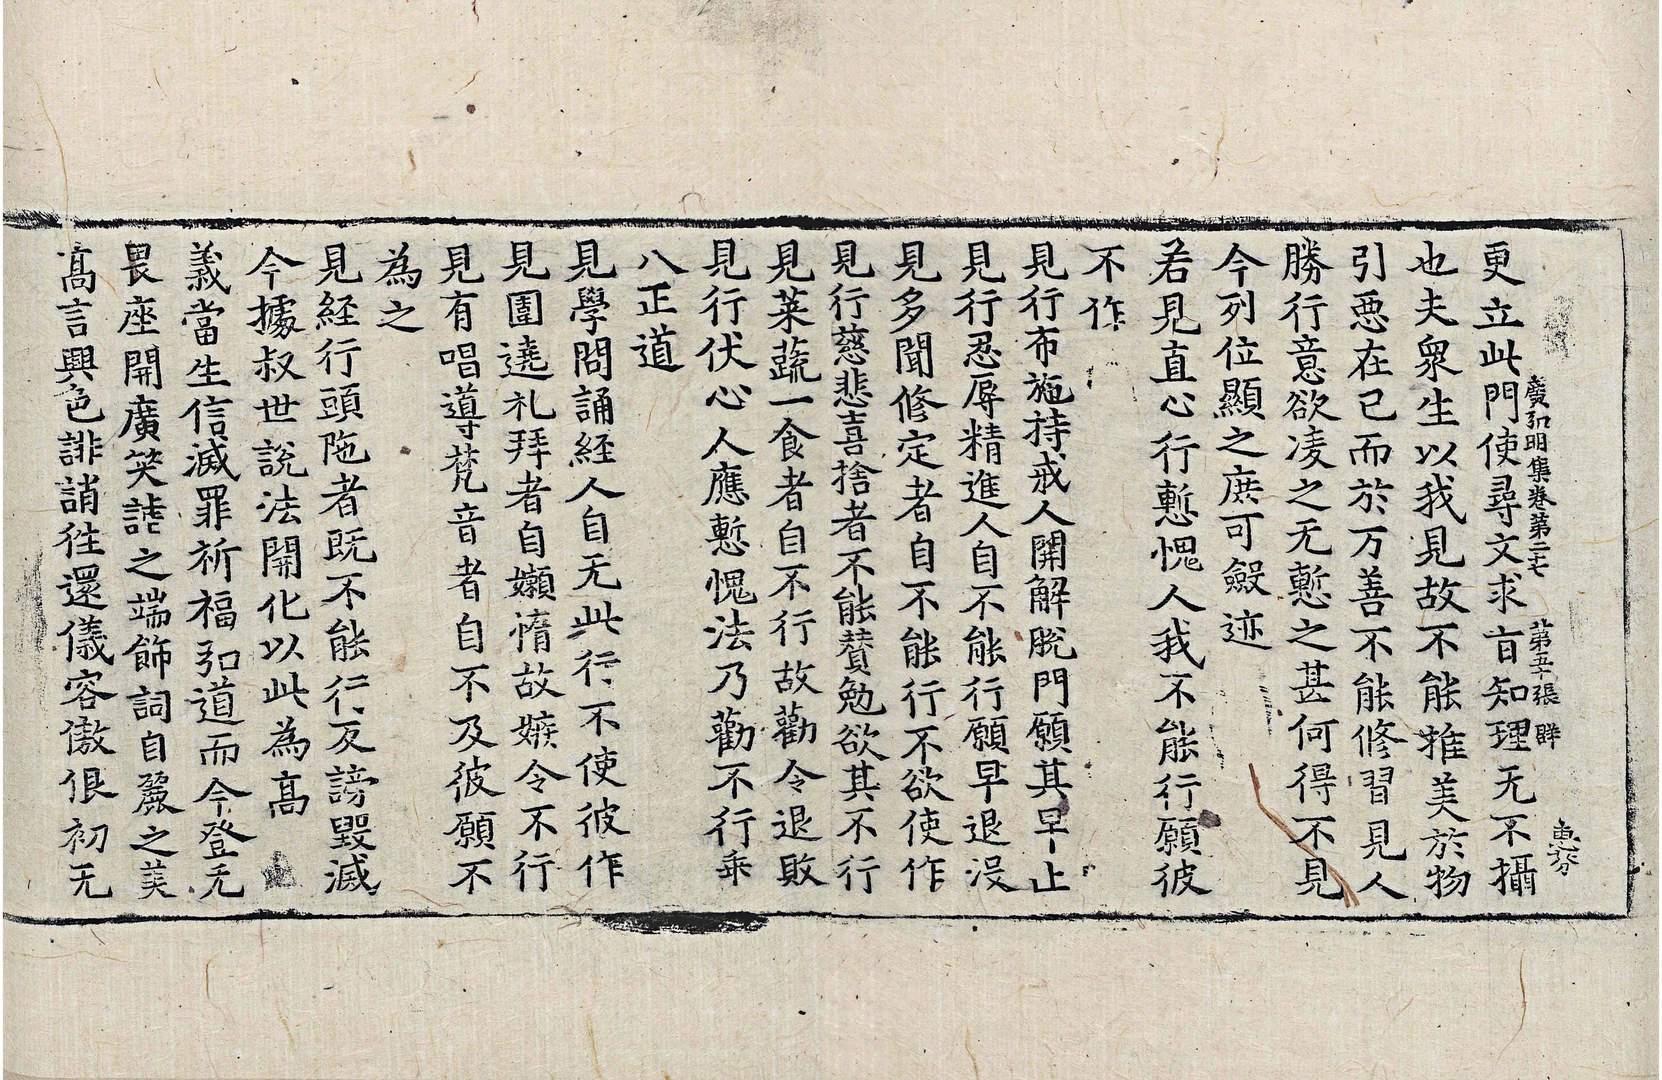 廣弘明集卷第二七 第五張 群
惠芬
更立此門使尋文求旨知理无不攝
也夫衆生以我見故不能推美於物
引惡在己而於万善不能修習見人
勝行意欲凌之无慙之甚何得不見
今列位顯之庶可斂迹
若見直心行慙愧人我不能行願彼
不作
見行布施持戒人開解脫門願其早止
見行忍辱精進人自不能行願早退沒
見多聞修定者自不能行不欲使作
見行慈悲喜捨者不能賛勉欲其不行
見菜蔬一食者自不行故勸令退敗
見行伏心人應慙愧法乃勸不行乘
八正道
見學問誦経人自无此行不使彼作
見圍遶礼拜者自嬾惰故嫉令不行
見有唱導梵音者自不及彼願不
為之
見経行頭陁者既不能行反謗毀滅
今據叔世說法開化以此為髙
義當生信滅罪祈福弘道而今登无
畏座開廣笑誩之端飾詞自麗之美
髙言興色誹誚往還儀容傲佷初无